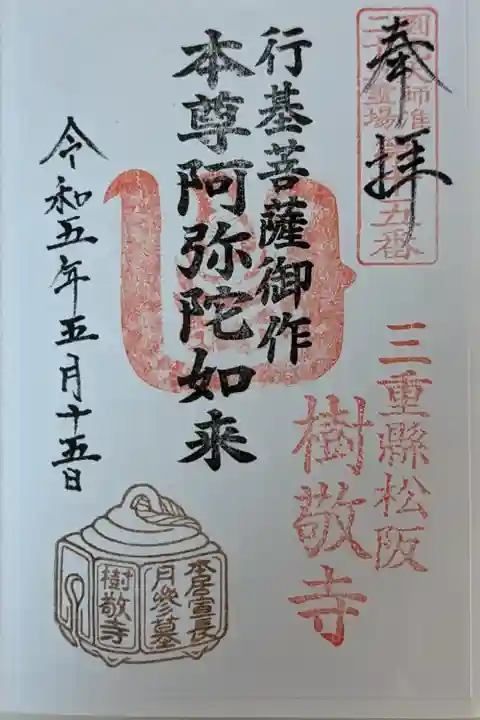 奉拝
三重縣松阪
樹敬寺
行基菩薩御作
本尊阿弥陀如来
令和五年五月十五日
本居宣長
月参墓
樹敬寺